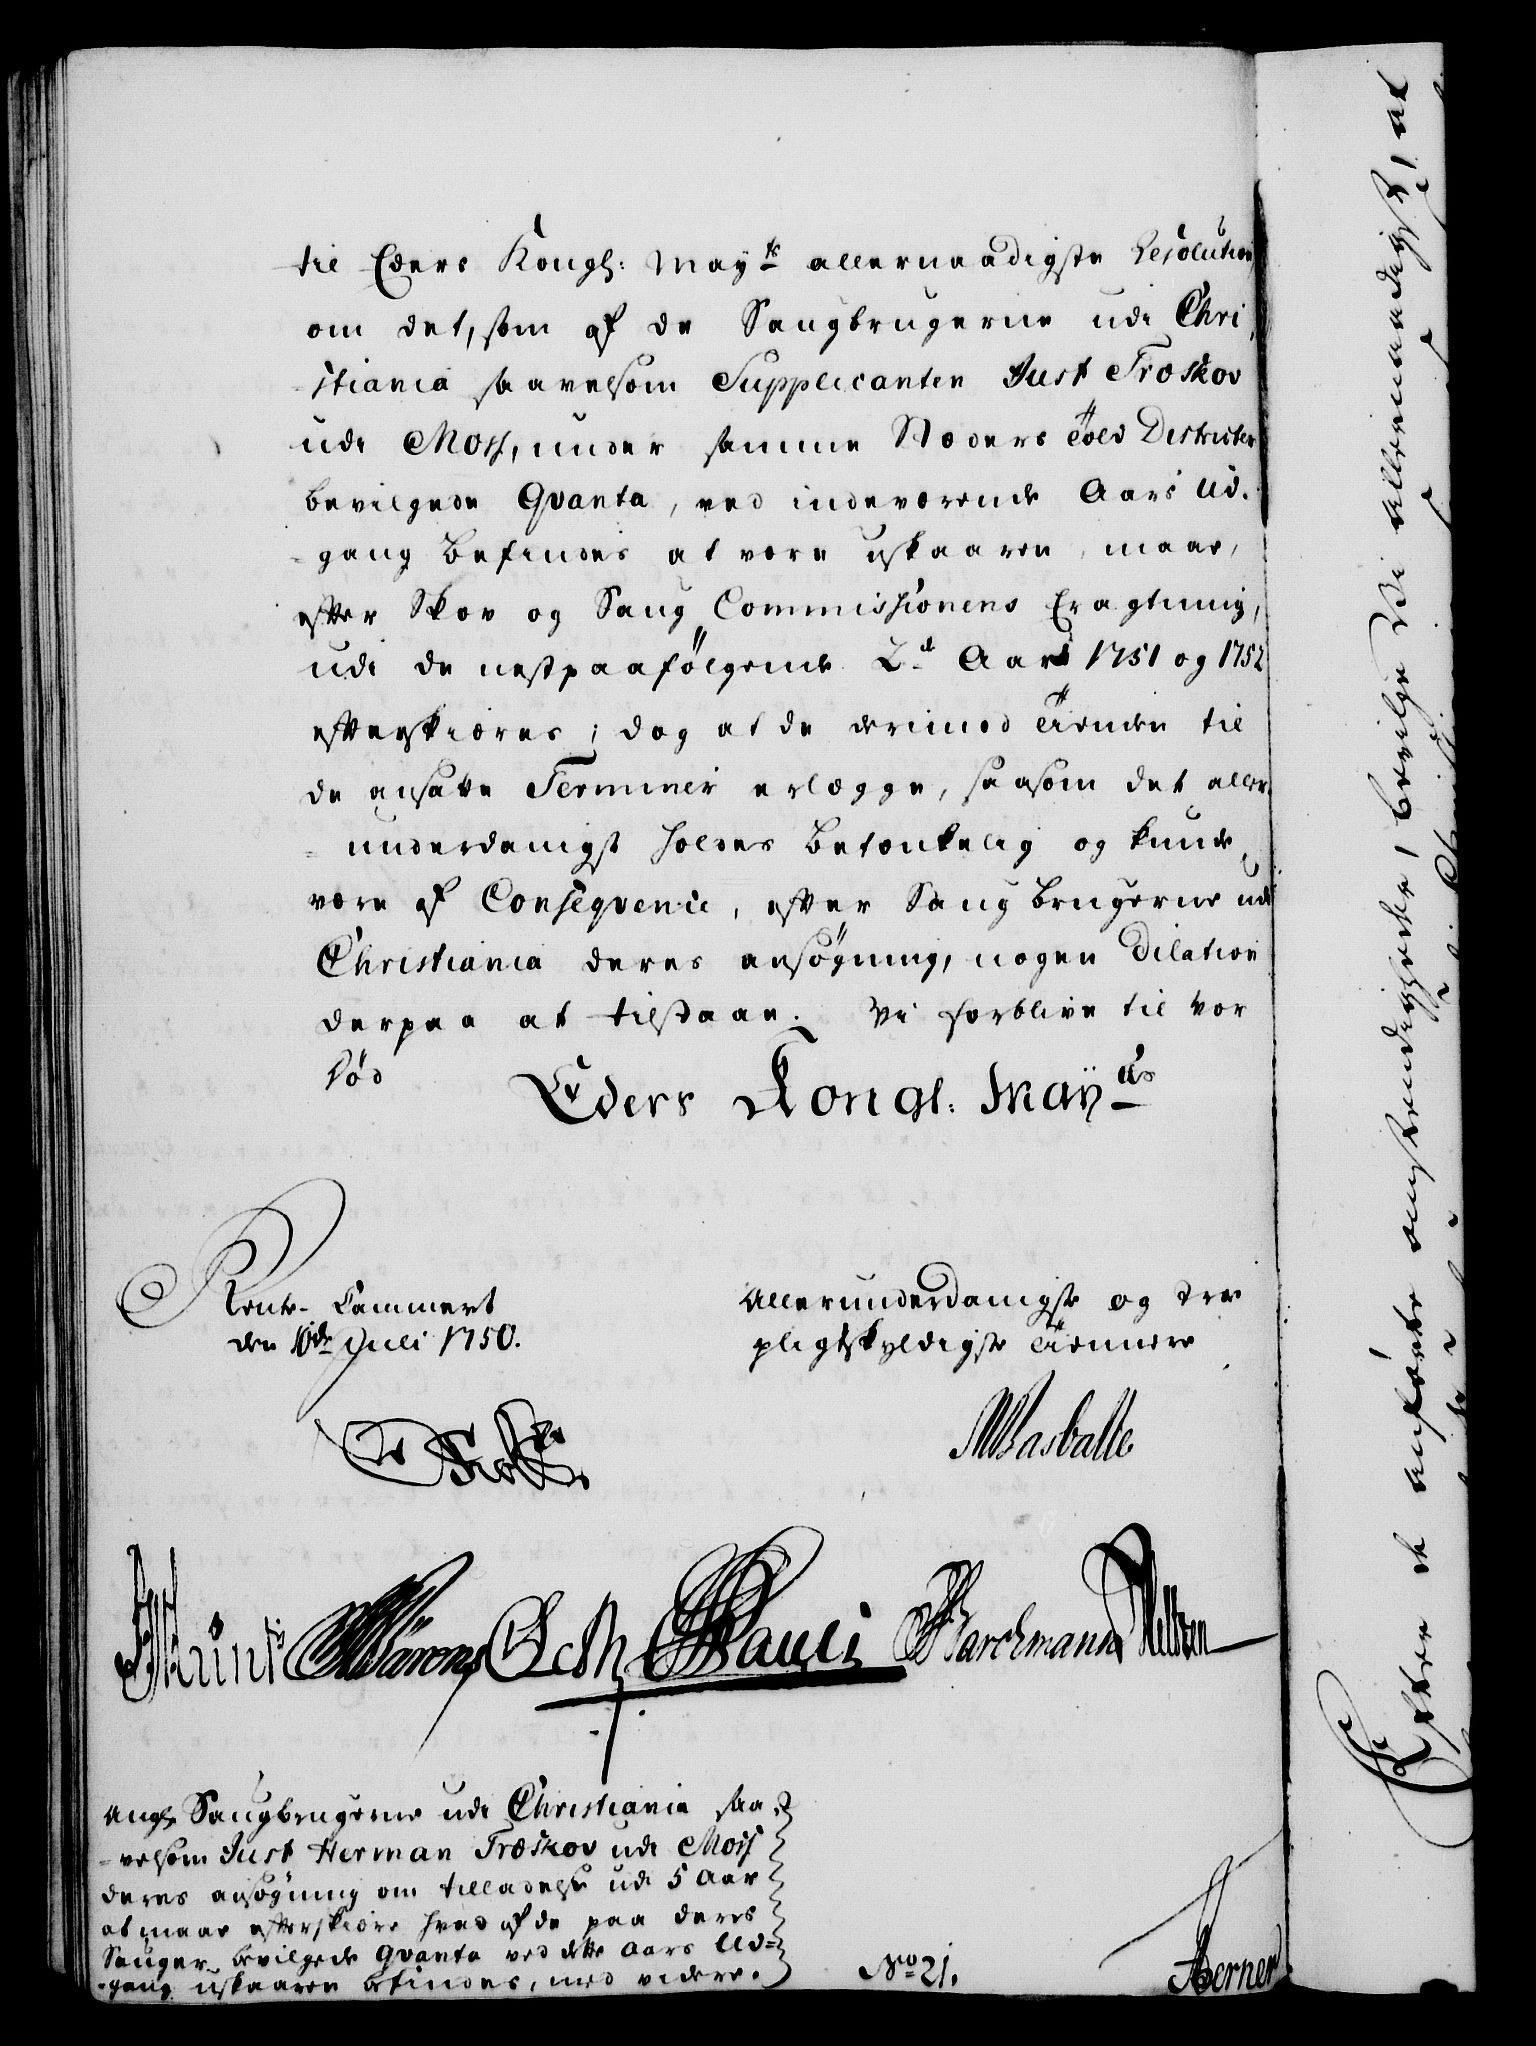 til Eders Kongl: May<sup>ts</sup> allernaadigste Resolution
om det, som af de Saugbrugerne udi Chri
stiania saavelsom Supplicanten Just Træskov
udi Moss, under samme Stæders Told Districter
bevilgede Qvanta, ved indeværende Aars Ud-
gang befindes at være uskaaren, maae,
efter Skov og Saug Commissionens Eragtning,
udi de nestpaafølgende 2<sup>de</sup> Aar 1751 og 1752
efterskiæres; dog at de derimod Tienden til
de ansatte Terminer erlægge, saasom det aller
underdanigst holdes betænkelig og kunde
være af Conseqvence, efter Saugbrugerne udi
Christiania deres ansøgning, nogen Dilation
derpaa at tilstaae. Vi forblive til vor
Død
Eders Kongl. May<sup>ts</sup>
Rente-Cammeret
den 10de Julii 1750.
Allerunderdanigste og troe
pligtskyldigste Tiennere
Pauli
Barchmann
Ang: Saugbrugerne udi Christiania saa
velsom Just Herman Træskov udi Moss
deres ansøgning om tilladelse udi 5 Aar
at maae efterskiære hvad af de paa deres
Sauger bevilgede Qvanta ved dette Aars Ud-
gang uskaaren befindes, med videre.
No 21.
Berner
Efter de anførte omstændigheder, bevilge Vi allernaadigst, at